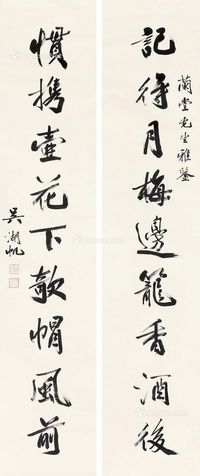 記得月梅邊籠香酒後
蘭堂先生雅鑒
慣攜壺花下欹帽風前
吳湖帆